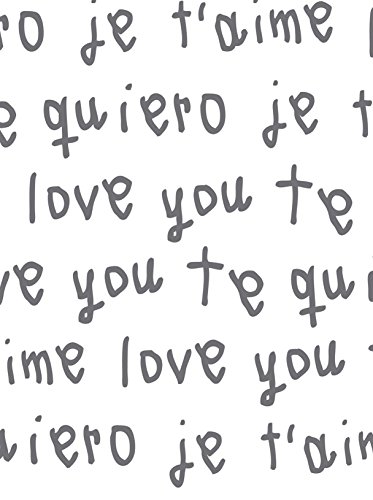 ro je t'aime l
e quiero je t
love you te
ve you te qui
ime love you t
uiero je t'aim